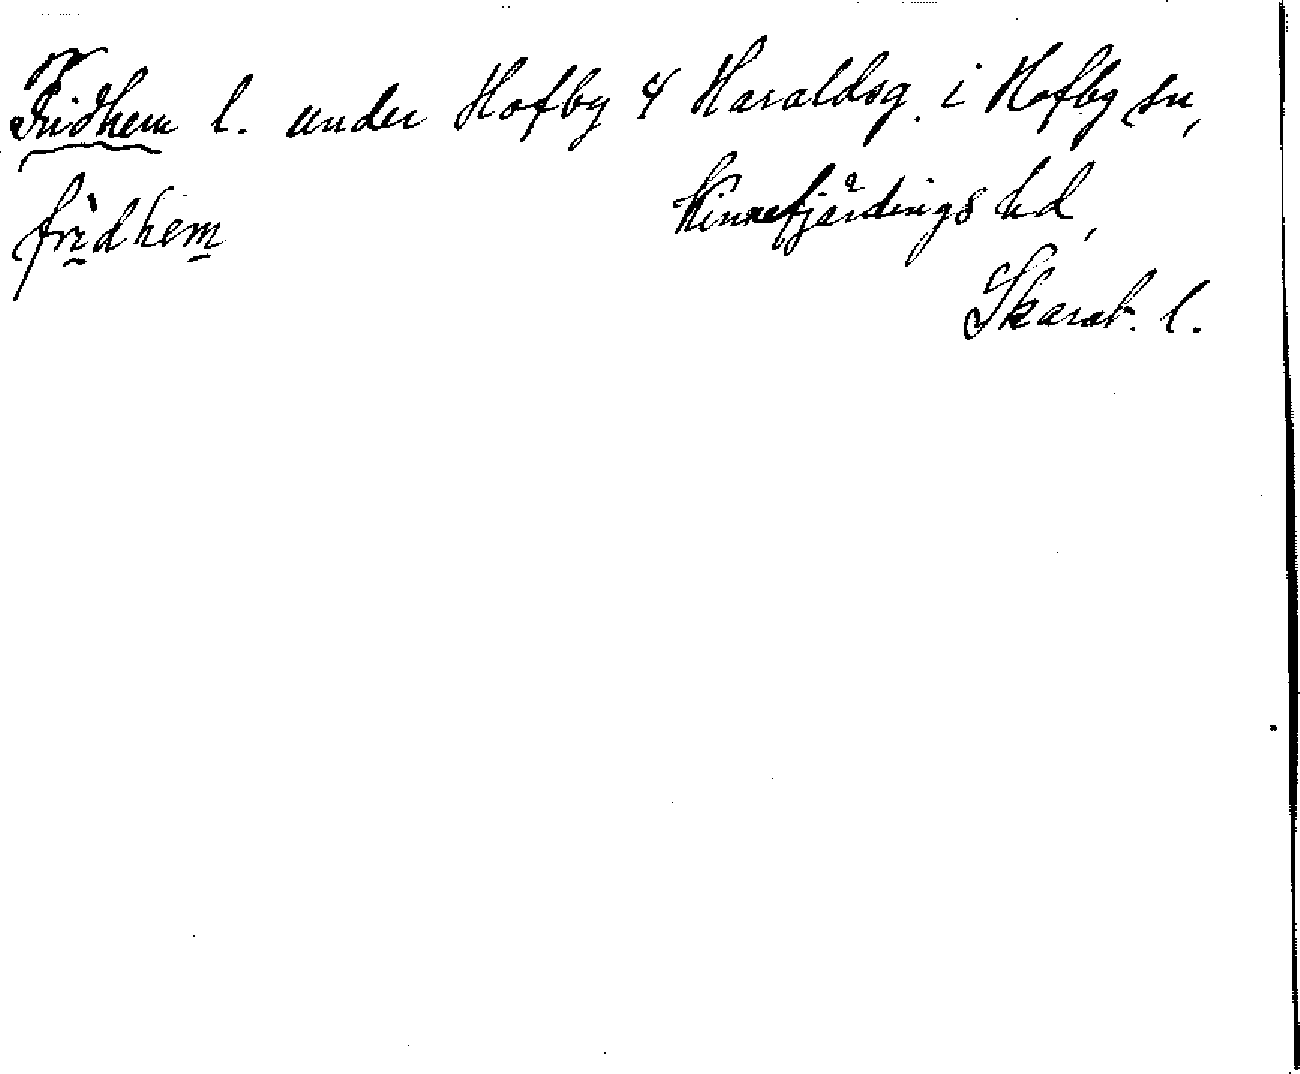 Fridhem l. under Hofby 4 Haraldsg. i Hofby sn,
frìdhem Kinnefjärdings hd,
Skarab. l.